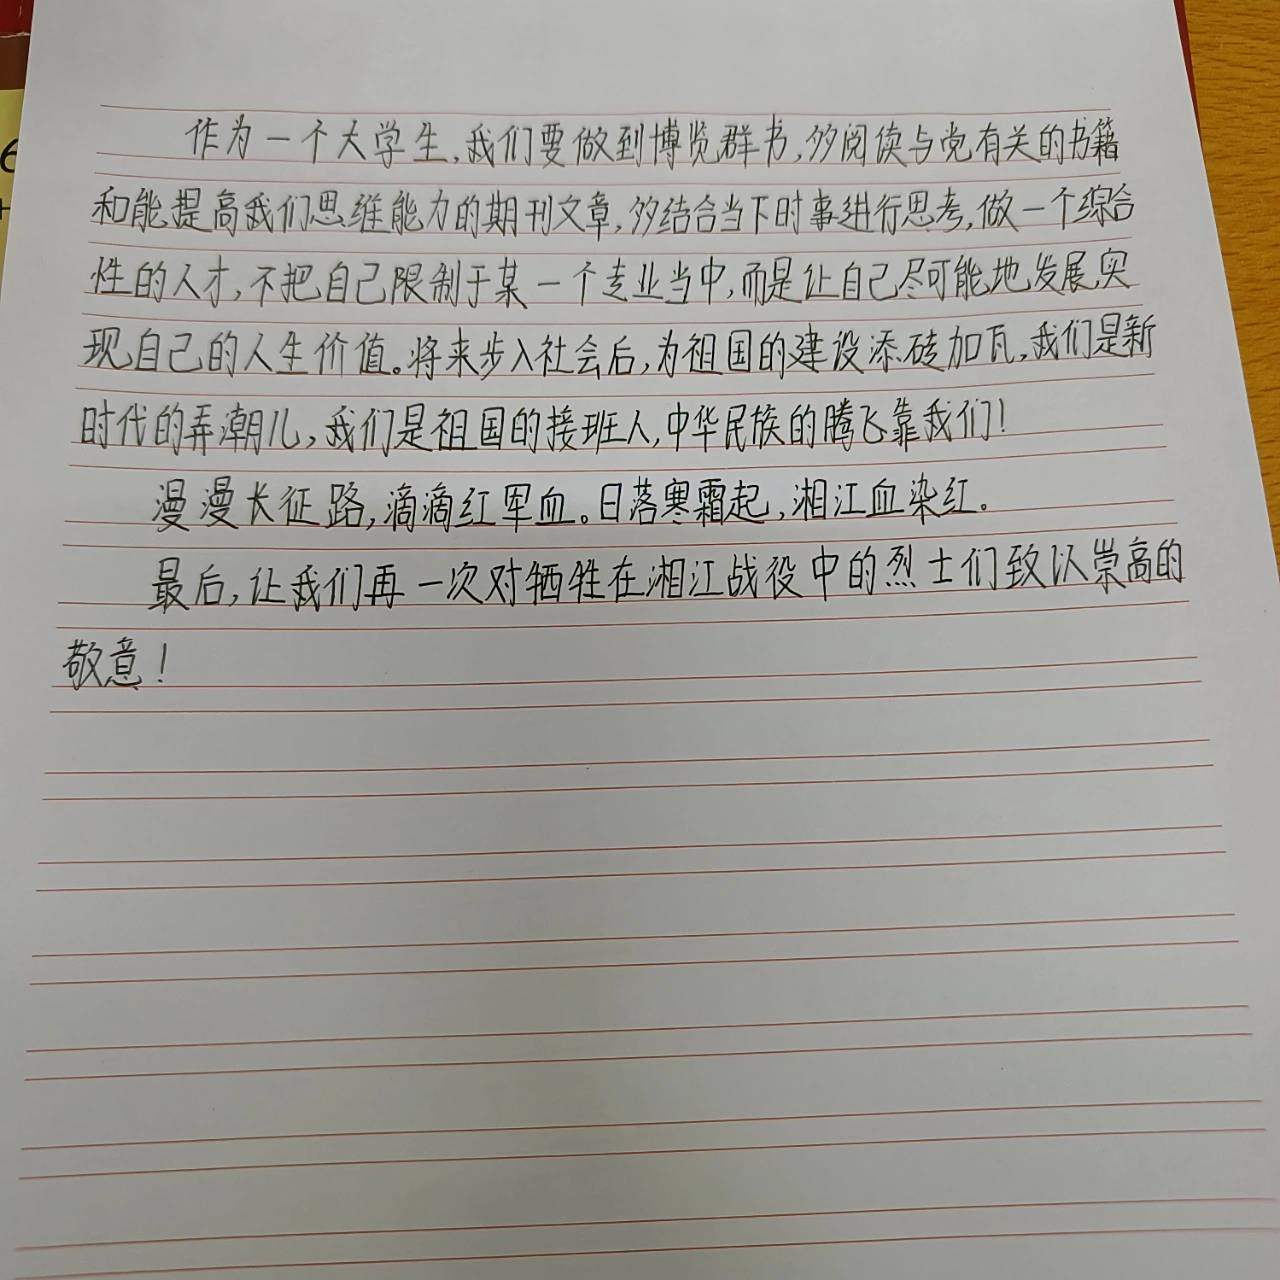 作为一个大学生,我们要做到博览群书,多阅读与党有关的书籍
和能提高我们思维能力的期刊文章,多结合当下时事进行思考,做一个综合
性的人才,不把自己限制于某一个专业当中,而是让自己尽可能地发展,实
现自己的人生价值。将来步入社会后,为祖国的建设添砖加瓦,我们是新
时代的弄潮儿,我们是祖国的接班人,中华民族的腾飞靠我们!
漫漫长征路,滴滴红军血。日落寒霜起,湘江血染红。
最后,让我们再一次对牺牲在湘江战役中的烈士们致以崇高的
敬意!
6
+